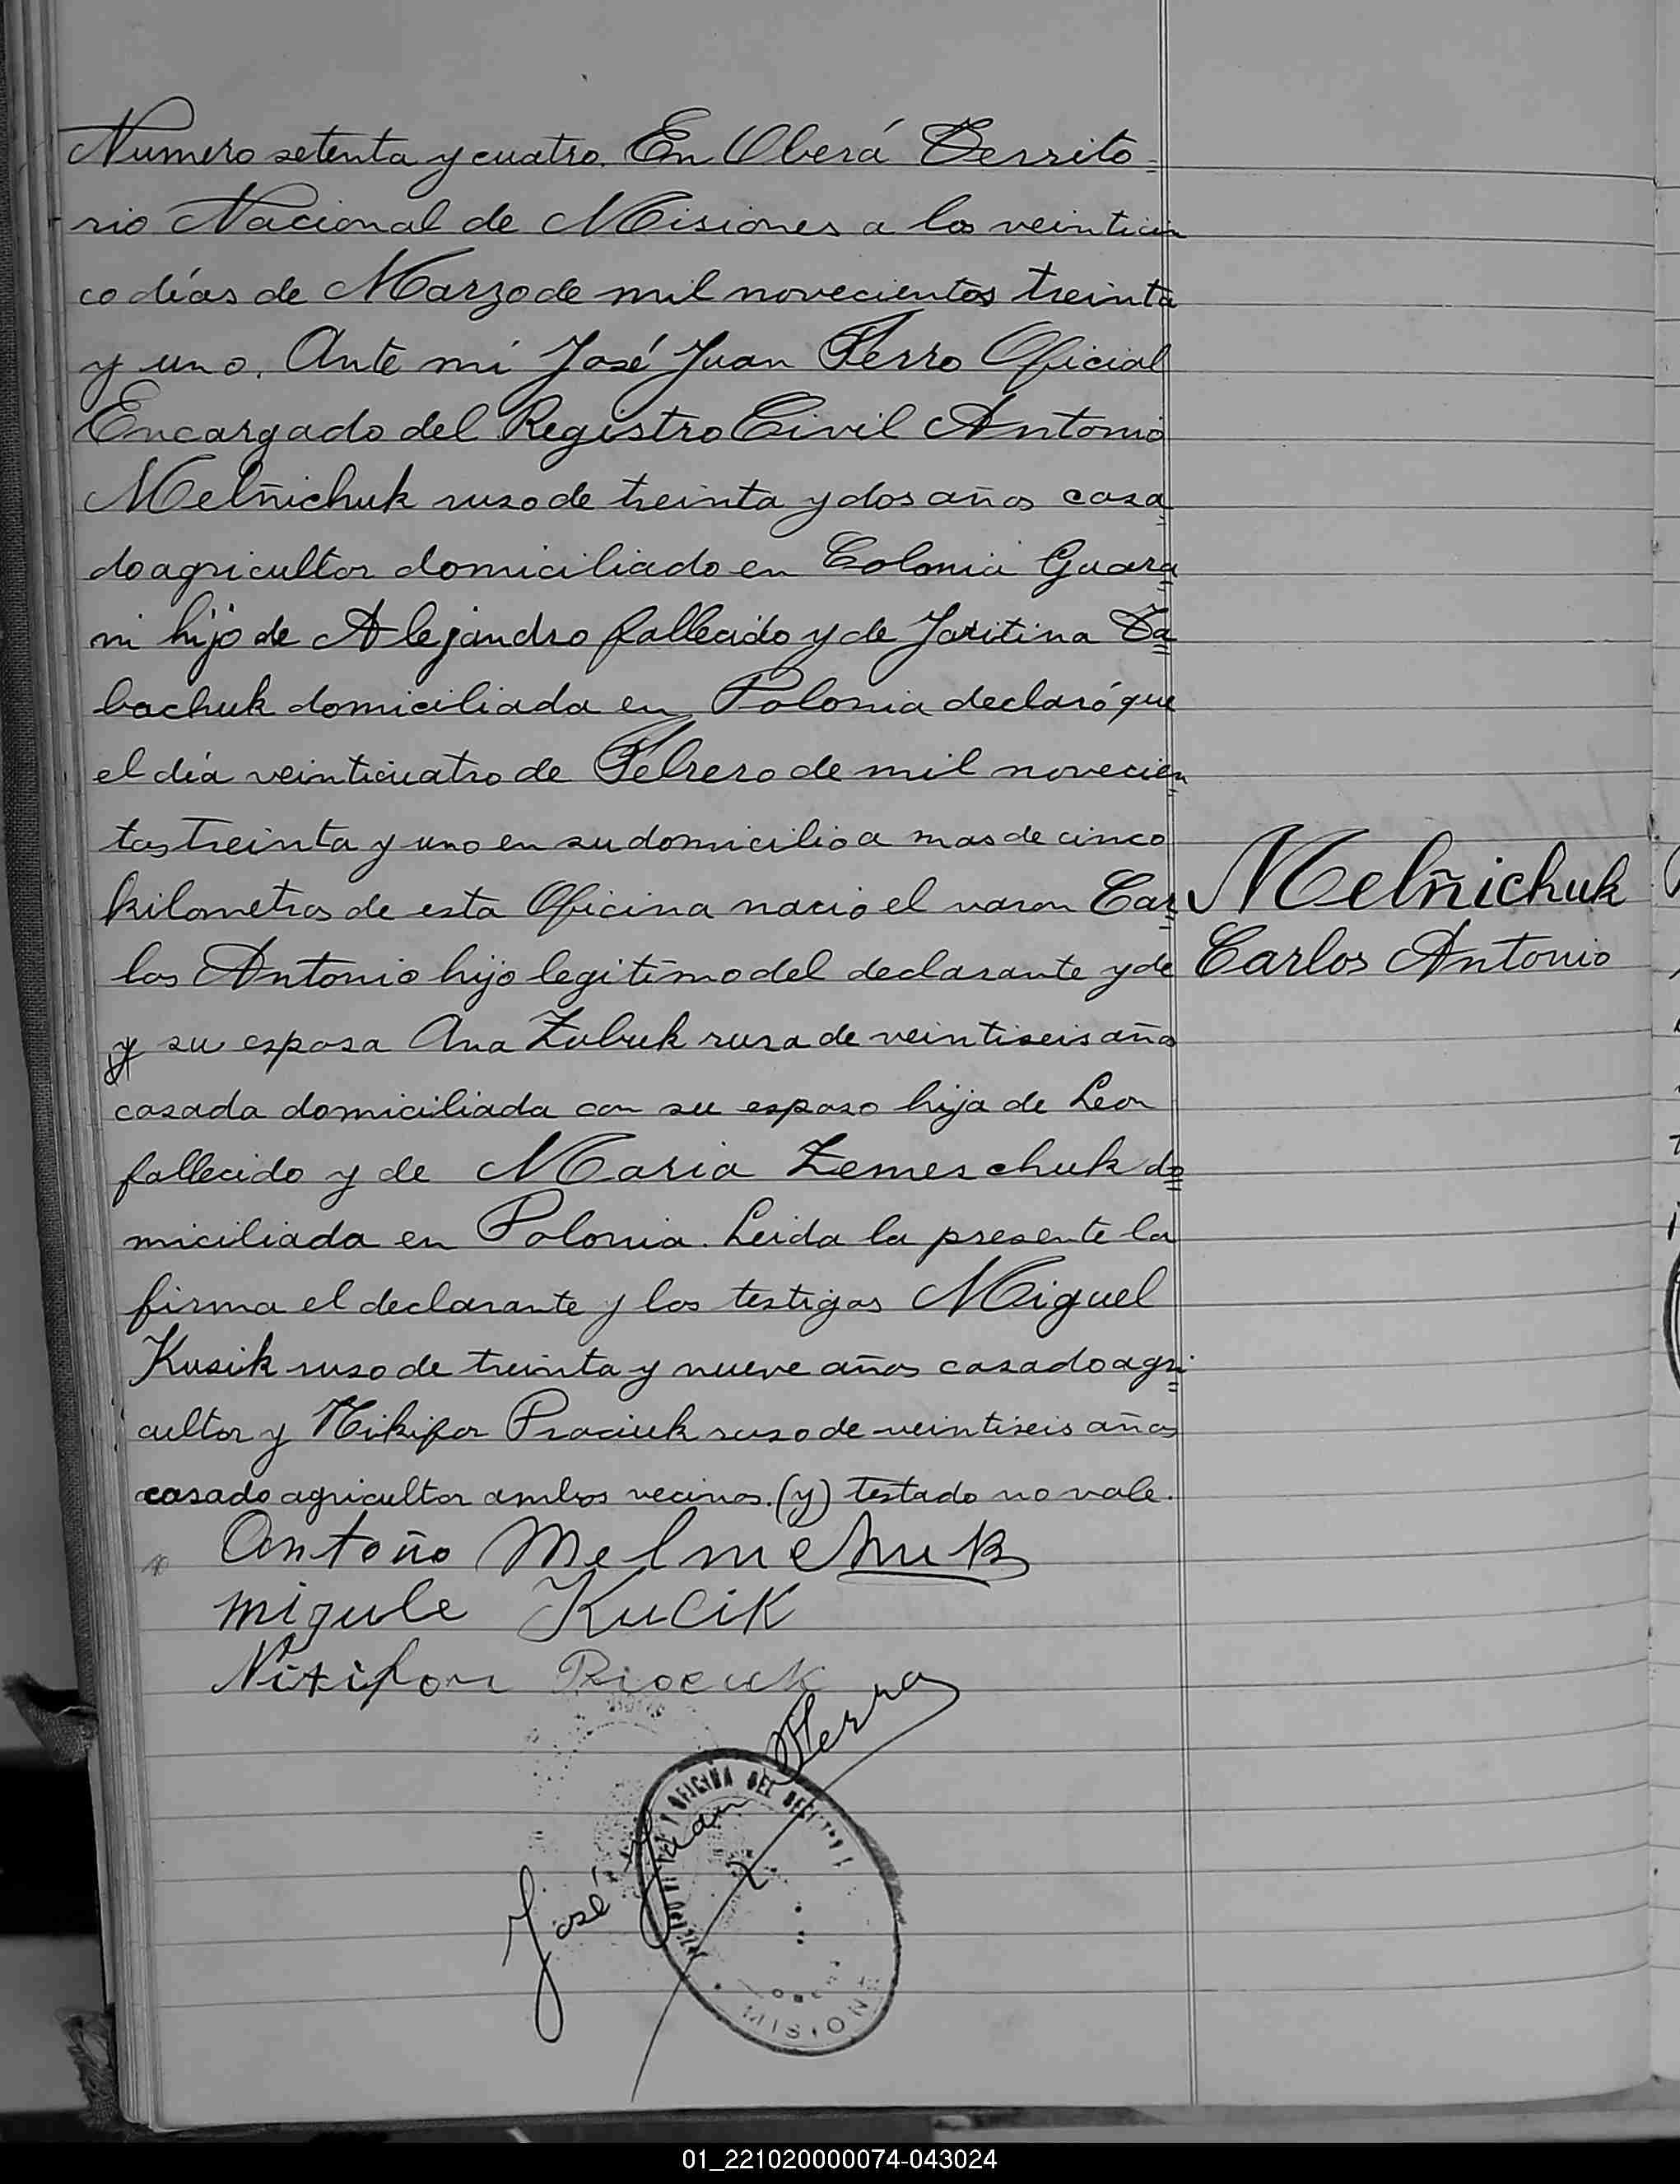 Numero setenta y cuatro. En Oberá Territo=
rio Nacional de Misiones a los veinticin
co días de Marzo de mil novecientos treinta
y uno. Ante mi José Juan Ferro Oficial
Encargado del Registro Civil Antonio
Melñichuk ruso de treinta y dos años casa=
do agricultor domiciliado en Colonia Guara=
ni hijo de Alejandro fallecido y de Jaritina Ta=
bachuk domiciliada en Polonia declaró que
el día veinticuatro de Febrero de mil novecien=
tos treinta y uno en su domicilio a mas de cinco
kilometros de esta Oficina nacio el varon Car=
los Antonio hijo legitimo del declarante y de
y su esposa Ana Zubuk rusa de veintiseis años
casada domiciliada con su esposo hija de Leon
fallecido y de Maria Zemeschuk do=
miciliada en Polonia. Leida la presente la
firma el declarante y los testigos Miguel
Kusik ruso de treinta y nueve años casado agri=
cultor y Nikifor Praciuk ruso de veintiseis años
casado agricultor ambos vecinos. (y) testado no vale.
Melñichuk
Carlos Antonio
Antoño Melnichuk
Migule Kucik
José Juan Ferro
OFICINA DEL
MISIONES
01_221020000074-043024